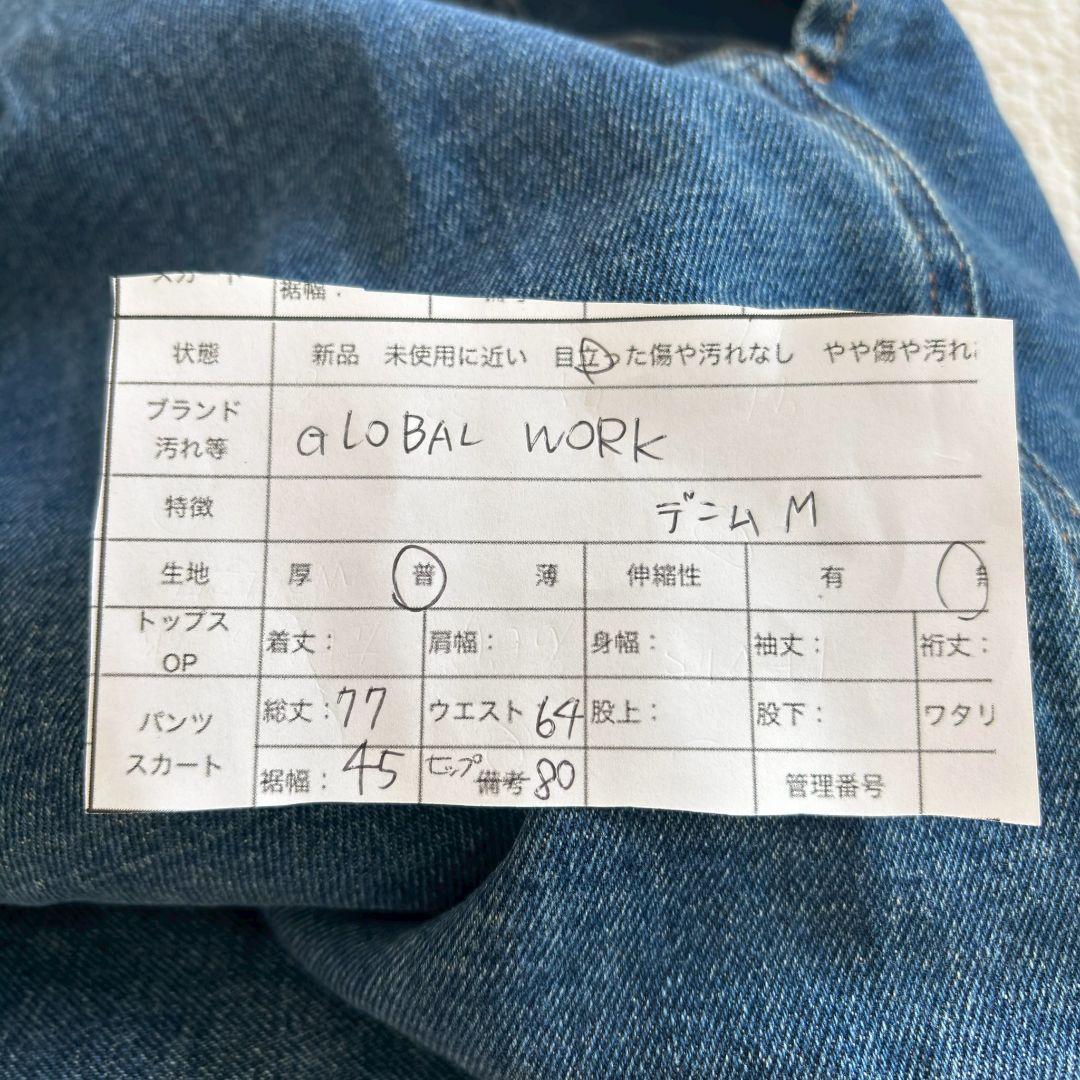 スカート 裾幅：
状態 新品 未使用に近い 目立った傷や汚れなし やや傷や汚れ
ブランド 汚れ等 GLOBAL WORK
特徴 デニム M
生地 厚 普 薄 伸縮性 有
トップス OP 着丈： 肩幅： 身幅： 袖丈： 裄丈：
パンツ 総丈：77 ウエスト 64 股上： 股下： ワタリ
スカート 裾幅：45 ヒップ 備考 80 管理番号